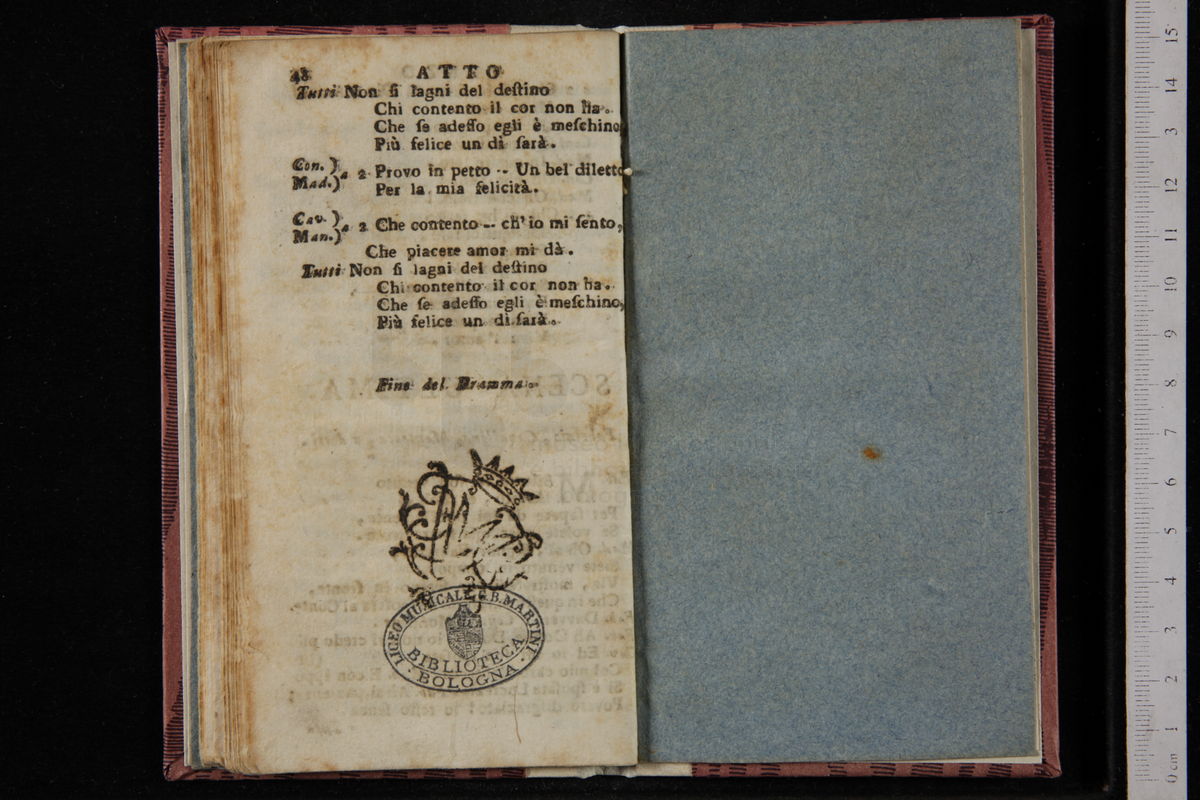 48 ATTO
Tutti Non ſi lagni del deſtino
Chi contento il cor non ha.
Che ſe adeſſo egli è meſchino
Più felice un dì ſarà.
Con. }
Mad. } a 2 Provo in petto -- Un bel diletto
Per la mia felicità.
Cav. }
Man. } a 2 Che contento -- ch' io mi ſento,
Che piacere amor mi dà.
Tutti Non ſi lagni del deſtino
Chi contento il cor non ha.
Che ſe adeſſo egli è meſchino,
Più felice un dì ſarà.
Fine del Dramma.
LICEO MUSICALE G.B. MARTINI
BIBLIOTECA
BOLOGNA
0 cm 1 2 3 4 5 6 7 8 9 10 11 12 3 14 15